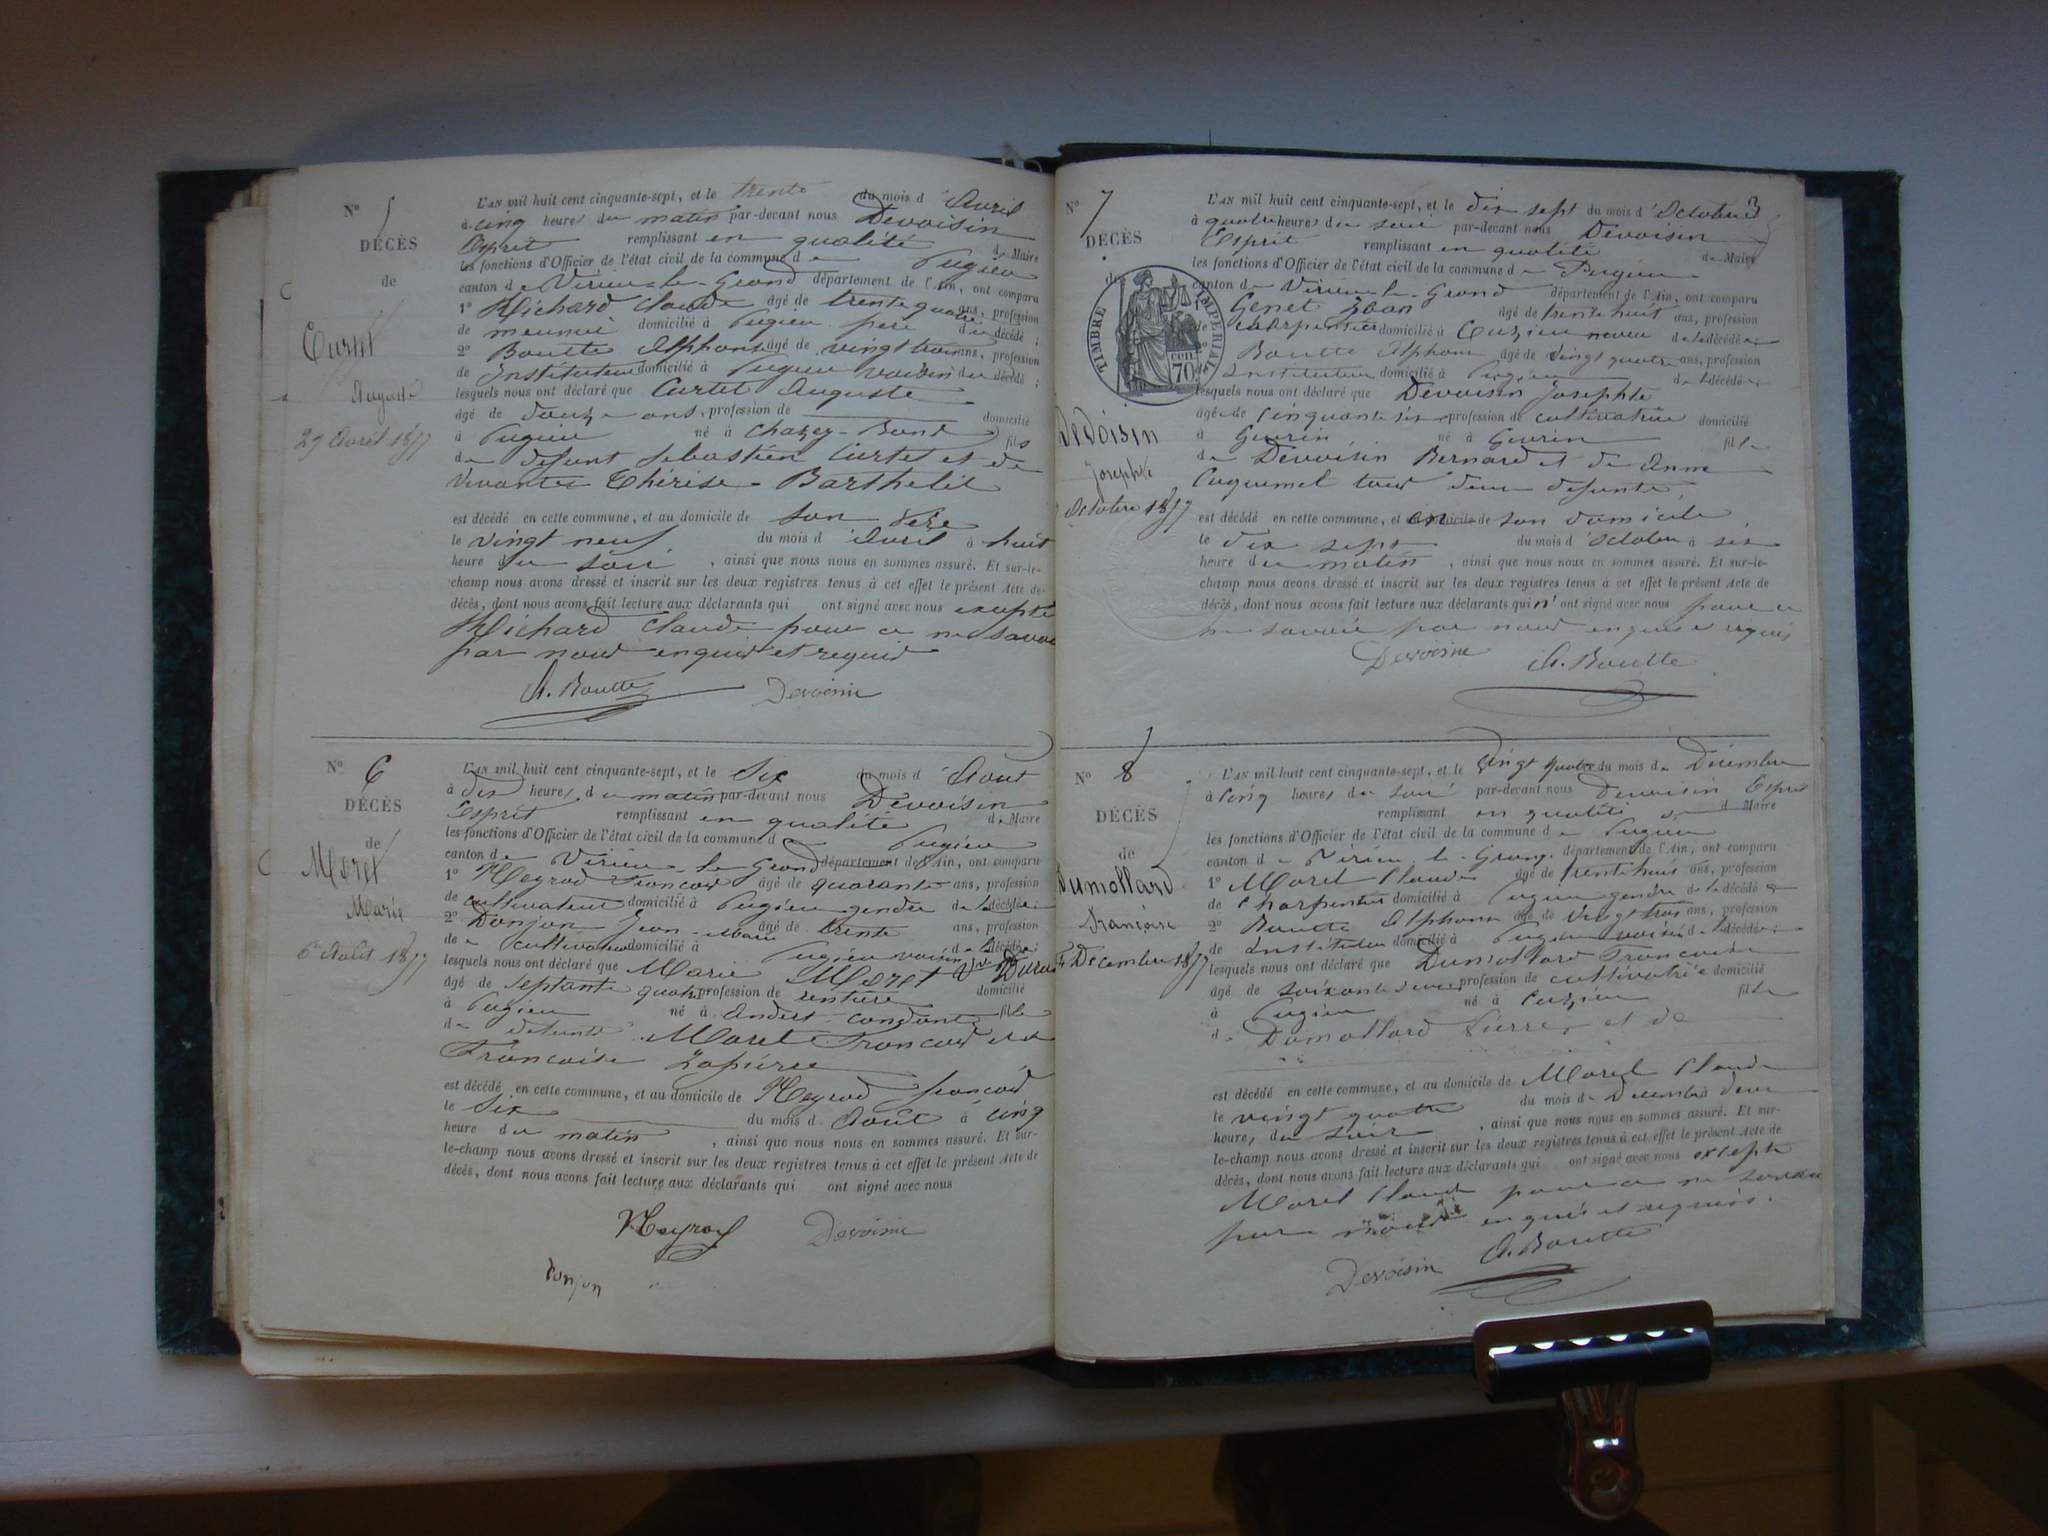 N° 5
DÉCÈS
de
Curtet
Auguste
29 Avril 1857
L'AN mil huit cent cinquante-sept, et le trente du mois d'Avril
à cinq heures du matin par-devant nous Devoisin
Esprit remplissant en qualité de Maire
les fonctions d'Officier de l'état civil de la commune de Pugieu
canton de Virieu-le-Grand département de l'Ain, ont comparu
1° Richard Claude âgé de trente quatre ans, profession
de meunier domicilié à Pugieu père du décédé ;
2° Boutte Alphonse âgé de vingt trois ans, profession
de Instituteur domicilié à Pugieu voisin du décédé ;
lesquels nous ont déclaré que Curtet Auguste
âgé de douze ans, profession de domicilié
à Pugieu né à Chazey-Bons fils
de defunt Sebastien Curtet et de
vivante Thérèse Barthelit
est décédé en cette commune, et au domicile de son Père
le vingt neuf du mois d'Avril à huit
heure du soir, ainsi que nous nous en sommes assuré. Et sur-le-
champ nous avons dressé et inscrit sur les deux registres tenus à cet effet le présent Acte de
décès, dont nous avons fait lecture aux déclarants qui ont signé avec nous excepté
Richard Claude pour ce ne savoir
par nous enquis et requis
A. Boutte Devoisin
N° 6
DÉCÈS
de
Moret
Marie
6 Août 1857
L'AN mil huit cent cinquante-sept, et le Six du mois d'Aout
à dix heures du matin par-devant nous Devoisin
Esprit remplissant en qualité de Maire
les fonctions d'Officier de l'état civil de la commune de Pugieu
canton de Virieu-le-Grand département de l'Ain, ont comparu
1° Meyrod Francois âgé de quarante ans, profession
de cultivateur domicilié à Pugieu gendre de la décédée
2° Donjon Jean-Marie âgé de trente ans, profession
de cultivateur domicilié à Pugieu voisin de la décédée ;
lesquels nous ont déclaré que Marie Moret Vve
âgé de septante quatre profession de rentière domicilié
à Pugieu né à Andert-condont fille
de defunts Moret Francois et de
Francoise Lapierre
est décédé en cette commune, et au domicile de Meyrod francois
le Six du mois d'Août à cinq
heure du matin, ainsi que nous nous en sommes assuré. Et sur-
le-champ nous avons dressé et inscrit sur les deux registres tenus à cet effet le présent Acte de
décès, dont nous avons fait lecture aux déclarants qui ont signé avec nous
Meyrod Devoisin
Donjon
N° 7 3
DÉCÈS
de
TIMBRE IMPERIAL
70 cen
Devoisin
Josephte
Octobre 1857
L'AN mil huit cent cinquante-sept, et le dix sept du mois d'Octobre
à quatre heures du soir par-devant nous Devoisin
Esprit remplissant en qualité de Maire
les fonctions d'Officier de l'état civil de la commune de Pugieu
canton de Virieu-le-Grand département de l'Ain, ont comparu
Genet Jean âgé de trente huit ans, profession
de charpentier domicilié à Cuzieu neveu de la décédée
Boutte Alphonse âgé de vingt quatre ans, profession
Instituteur domicilié à Pugieu de la décédée ;
lesquels nous ont déclaré que Devoisin Josephte
âgée de cinquante six profession de cultivatrice domicilié
à Gevrin né à Gevrin fille
de Devoisin Bernard et de Anne
Cuquemel tous deux defunts
est décédé en cette commune, et en son domicile
le dix sept du mois d'Octobre à six
heure du matin, ainsi que nous nous en sommes assuré. Et sur-le-
champ nous avons dressé et inscrit sur les deux registres tenus à cet effet le présent Acte de
décès, dont nous avons fait lecture aux déclarants qui n'ont signé avec nous pour ce
ne savoir par nous enquis et requis
Devoisin A. Boutte
N° 8
DÉCÈS
de
Dumollard
Françoise
Décembre 1857
L'AN mil huit cent cinquante-sept, et le vingt quatre du mois de Décembre
à cinq heures du soir par-devant nous Devoisin Esprit
remplissant en qualité de Maire
les fonctions d'Officier de l'état civil de la commune de Pugieu
canton de Virieu-le-Grand département de l'Ain, ont comparu
1° Morel Claude âgé de trente huit ans, profession
de Charpentier domicilié à Pugieu gendre de la décédée
2° Boutte Alphonse âgé de vingt trois ans, profession
de Instituteur domicilié à Pugieu voisin de la décédée ;
lesquels nous ont déclaré que Dumollard Francoise
âgé de soixante profession de cultivatrice domicilié
à Pugieu né à Cuzieu fille
de Dumollard Pierre et de
est décédé en cette commune, et au domicile de Morel Claude
le vingt quatre du mois de Décembre à deux
heures du soir, ainsi que nous nous en sommes assuré. Et sur-
le-champ nous avons dressé et inscrit sur les deux registres tenus à cet effet le présent Acte de
décès, dont nous avons fait lecture aux déclarants qui ont signé avec nous excepté
Morel Claude pour ce ne savoir
par nous enquis et requis.
Devoisin A. Boutte